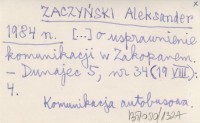 ZACZYŃSKI Aleksander
1984 n. [..] o usprawnienie
komunikacji w Zakopanem.
- Dunajec 5, nr 34 (19 VIII):
4.
Komunikacja autobusowa.